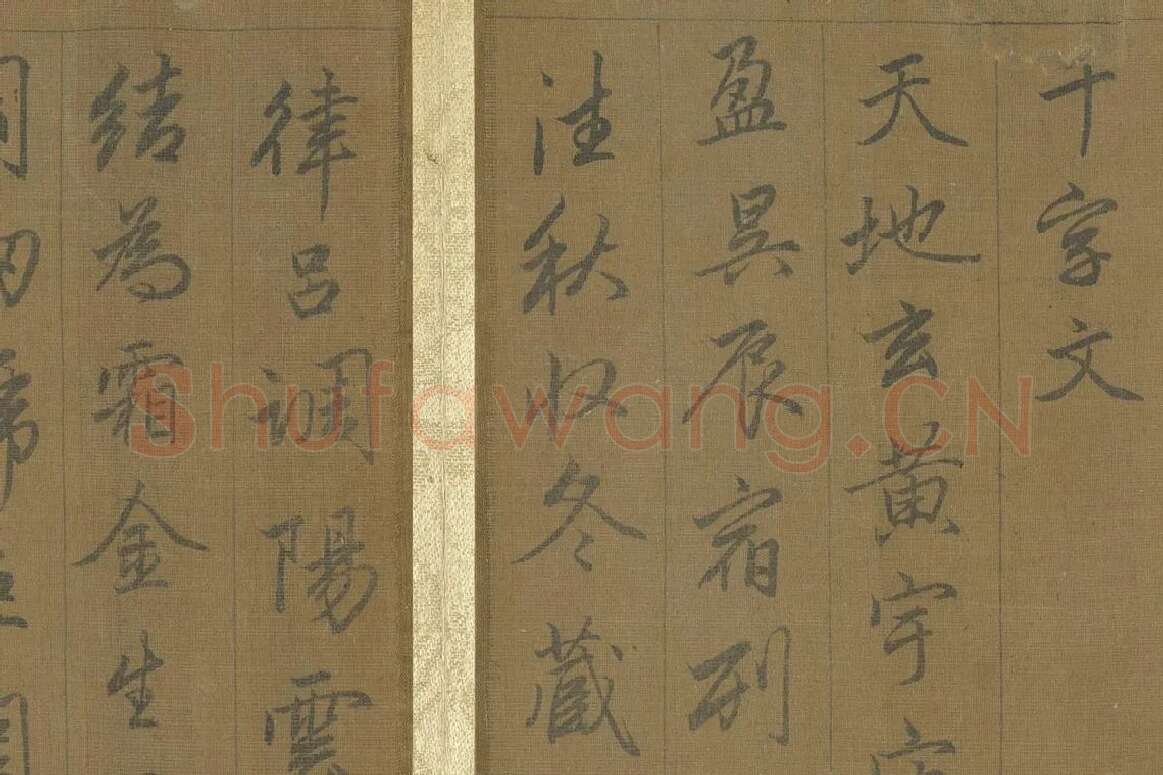 千字文
天地玄黄宇
盈昃辰宿列
往秋收冬藏
律吕調陽雲
結為霜金生
Shufawang.CN